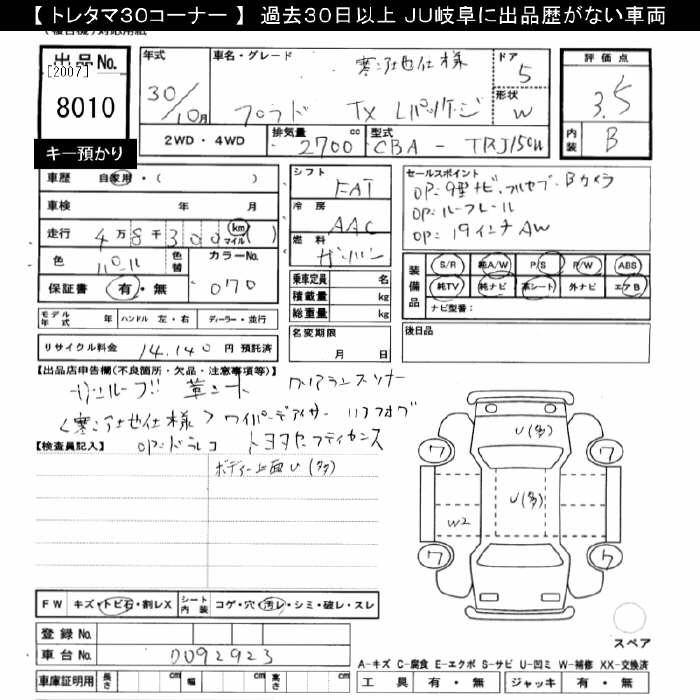 【 トレタマ30コーナー 】 過去30日以上 JU岐阜に出品歴がない車両
出品No.
[2007]
8010
キー預かり
年式
30/10月
車名・グレード
寒冷地仕様
プラド TX Lパッケージ
ドア
5
形状
W
評価点
3.5
内装
B
2WD ・ 4WD
排気量
2700
cc
型式
CBA - TRJ150W
車歴 自家用・( )
車検 年 月
走行 4万8千300 km マイル ( )
色 パール 色替
カラーNo.
070
保証書 有・無
シフト
FAT
冷房
AAC
燃料
ガソリン
乗車定員 名
積載量 kg
総重量 kg
名変期限
月 日
セールスポイント
OP:9型ナビ、フルセグ・Bカメラ
OP:ルーフレール
OP:19インチAW
装備品
S/R 純A/W P/S P/W ABS
純TV 純ナビ 革シート 外ナビ エアB
ナビ型番:
後日品
モデル年式 年 ハンドル 左・右 ディーラー・並行
リサイクル料金 14,140 円 預託済
【出品店申告欄(不良箇所・欠品・注意事項等)】
サンルーフ!! 革シート クリアランスソナー
<寒冷地仕様> ワイパーデアイサー リアフォグ
OP:ドラレコ トヨタセーフティセンス
【検査員記入】
ボディー上面U(多)
U(多)
ワ ワ
U(多)
W2
ワ ワ
スペア
FW キズ・トビ石・割レX シート内装 コゲ・穴・汚レ・シミ・破レ・スレ
登録No.
車台No. 0092923
車庫証明用 長さ cm 幅 cm 高さ cm
A-キズ C-腐食 E-エクボ S-サビ U-凹ミ W-補修 XX-交換済
工具 有・無 ジャッキ 有・無